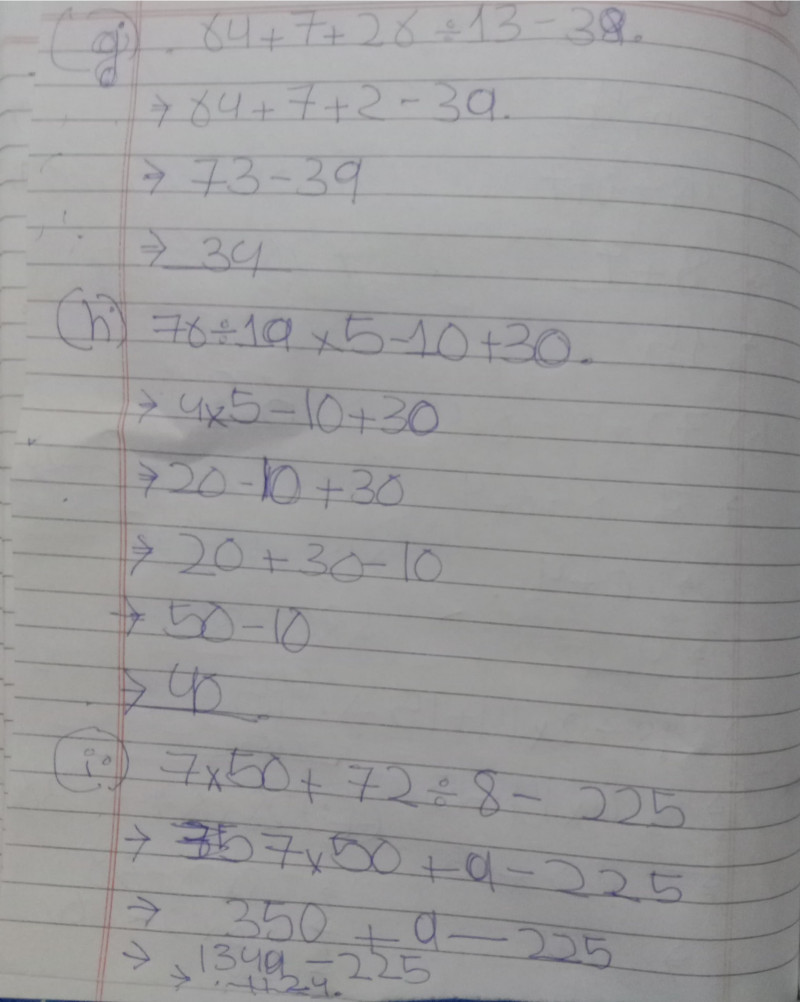 (g) 64+7+26÷13-39.
⇒ 64+7+2-39.
⇒ 73-39
⇒ 34
(h) 76÷19×5-10+30.
⇒ 4×5-10+30
⇒ 20-10+30
⇒ 20+30-10
→ 50-10
→ 40
(i) 7×50+72÷8- 225
→ 7×50+9-225
→ 350+9-225
→ 1349-225